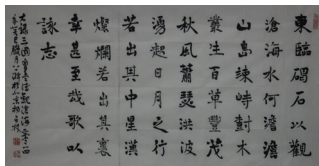 東臨碣石以觀
滄海水何澹澹
山島竦峙樹木
叢生百草豐茂
秋風蕭瑟洪波
湧起日月之行
若出其中星漢
燦爛若出其裏
幸甚至哉歌以
詠志
三國曹孟德觀滄海